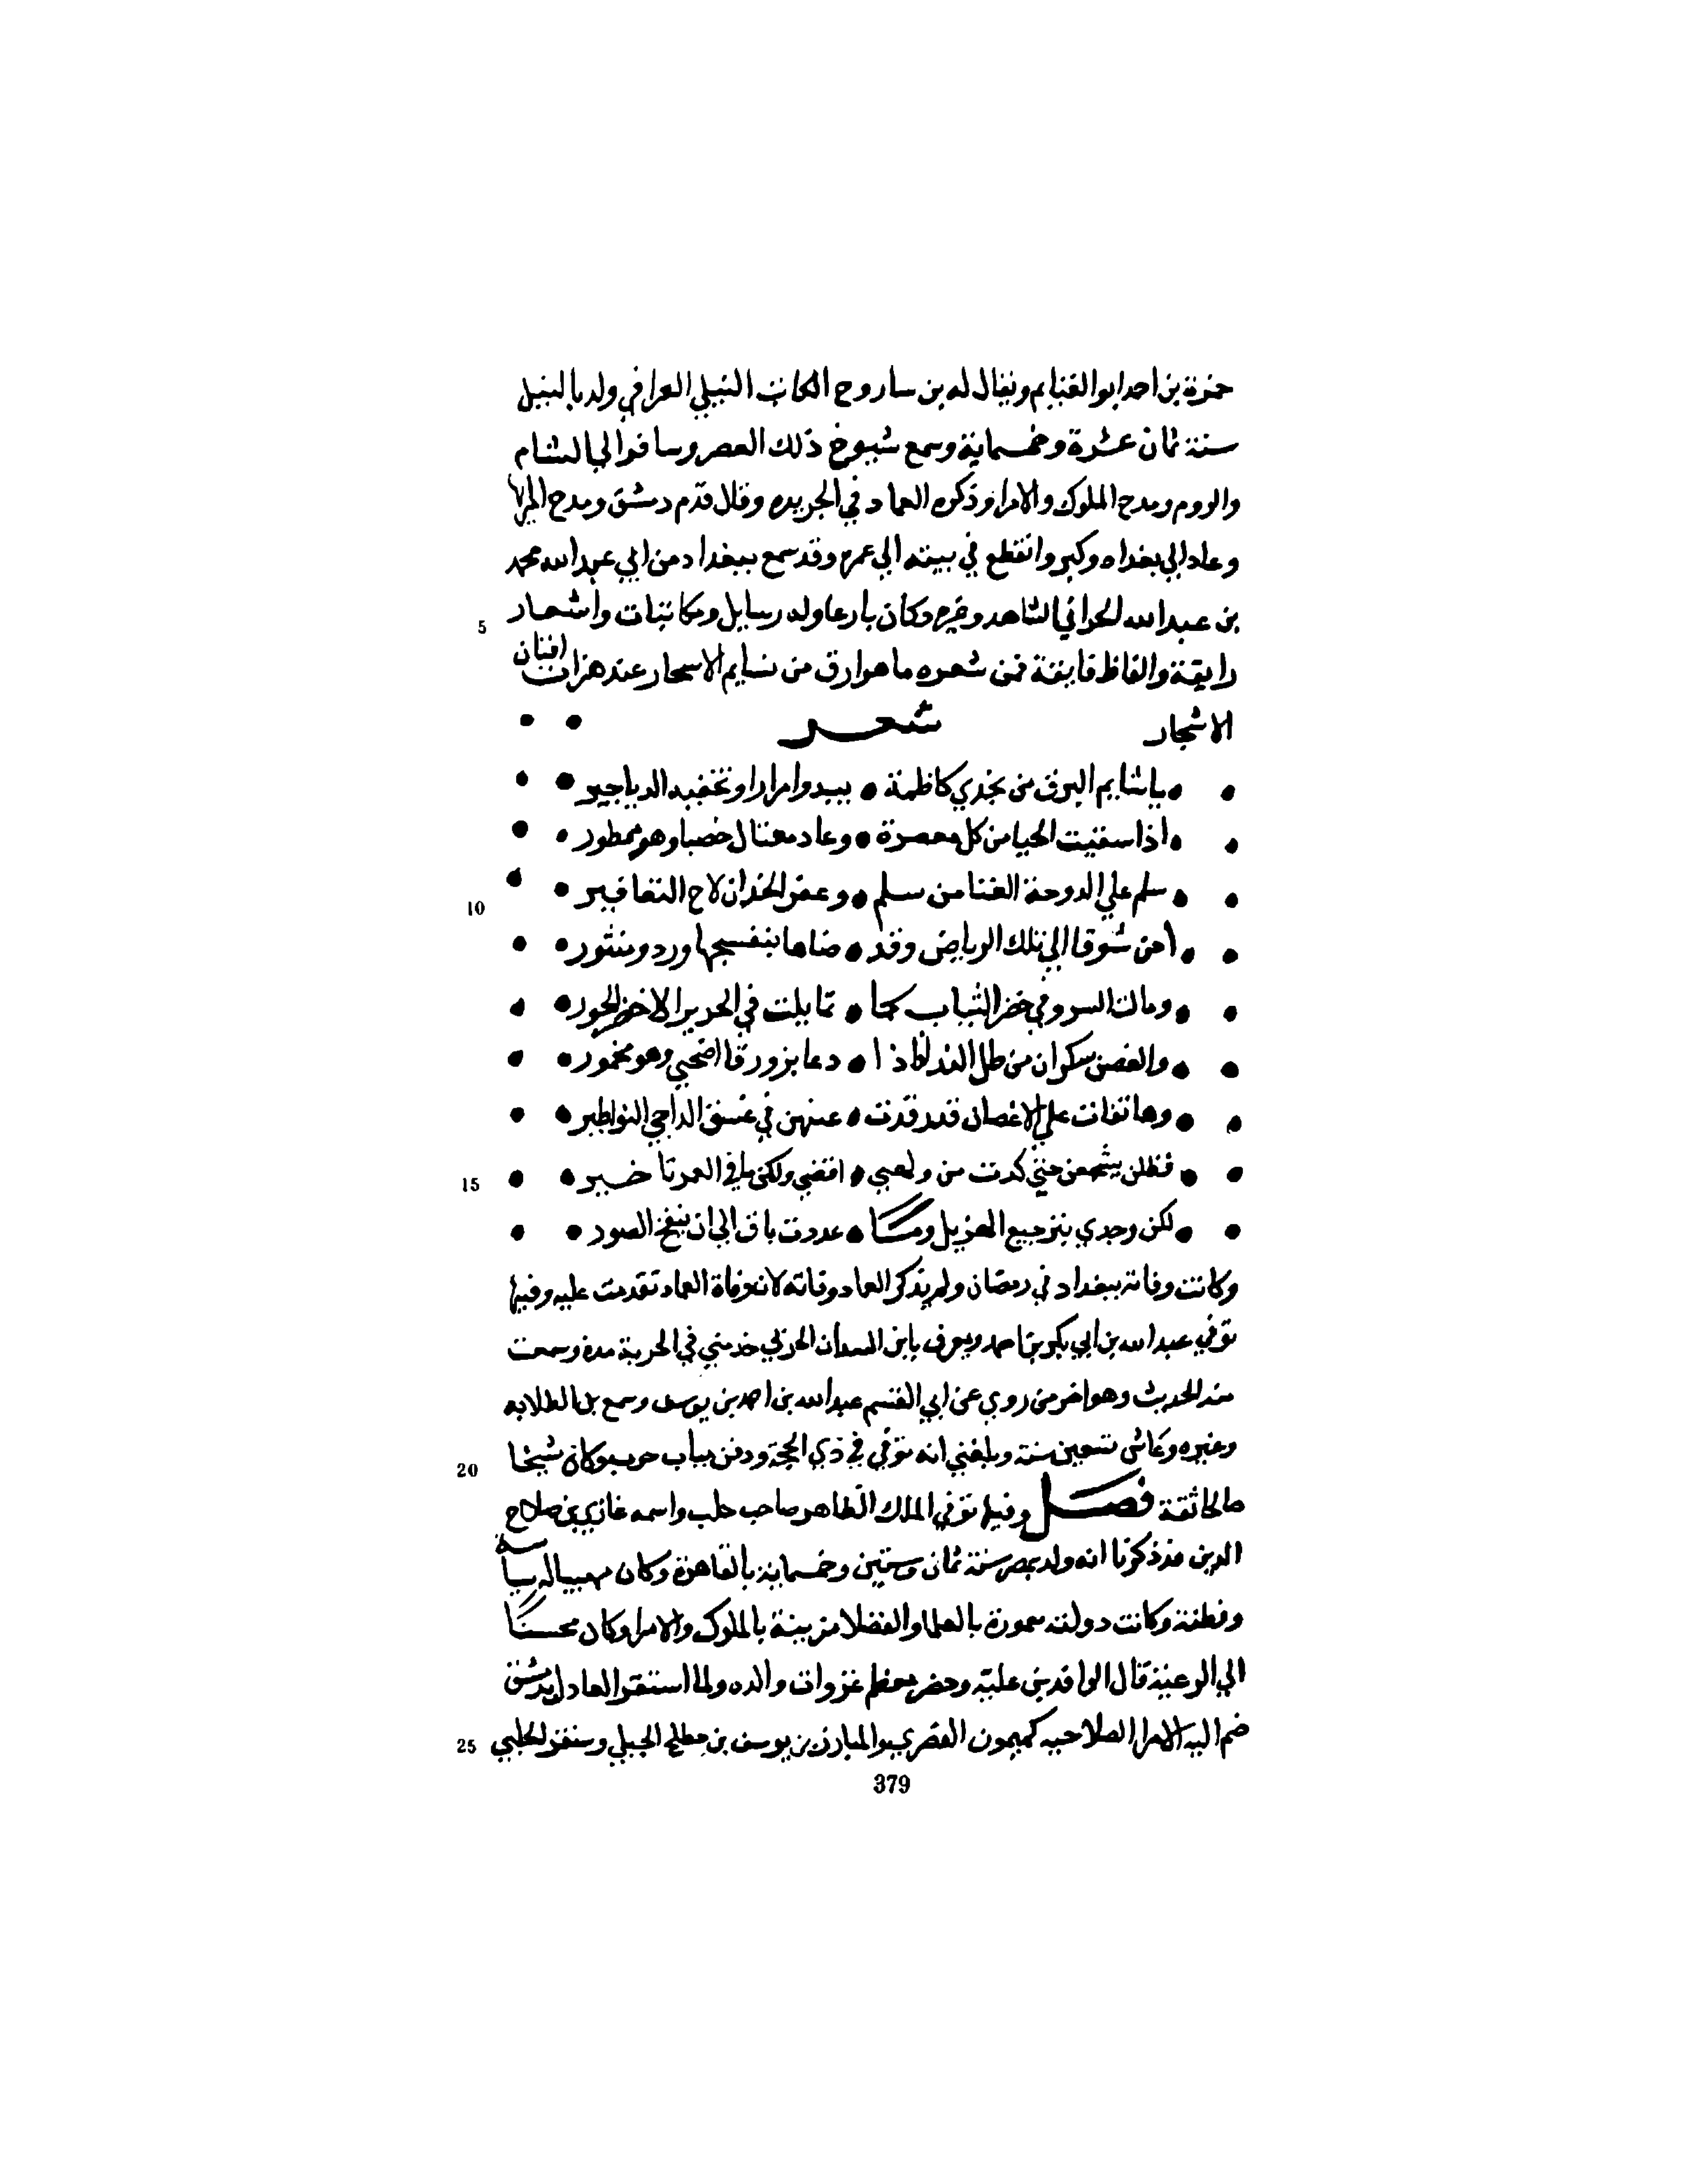 حمزة بن احمد ابو الغنايم ويقال له بن ساروح الكاتب النيلي العراقي ولد بالنيل
سنة ثمان عشرة وخمسماية وسمع شيوخ ذلك العصر وسافر الي الشام
والروم ومدح الملوك والامرا وذكره العماد في الجريده وقال قدم دمشق ومدح
وعاد الي بغداد وكبر وانقطع في بيته الي عمره وقد سمع ببغداد من ابي عبد الله محمد
بن عبد الله الحراني الشاهد وغيره وكان بارعا وله رسايل ومكاتبات واشعار
5
رايقة والفاظ فايقة فمن شعره ما هو ارق من نسايم الاسحار عند هزات افنان
الاشجار شعر
يا شايم البرق من نجدي كاظمة يبدوا مرارا وتخفيه الدياجير
اذا سقيت الحيا من كل معصرة وعاد مغناك خصبا وهو ممطور
سلم علي الدوحة الغنا من سلم وعفر الخد ان لاح التعافير
10
احن شوقا الي تلك الرياض وقد ضاها بنفسجها ورد ومنثور
ومالت السرو في خضر الثياب كما تمايلت في الحرير الاخضر الحور
والغصن سكران من طل الندا فاذا دعا بزورقا اضحي وهو مخمور
وهاتفات علي الاغصان قد قدت عنهن في غسق الداجي النواطير
فظلن يشجعن حتي كدت من ولهي اقضي ولكن ما في العمر تاخير
15
لكن وجدي بترجيع الهزيل عددت باق الي ان ينفخ الصور
وكانت وفاته ببغداد في رمضان ولم يذكر العماد وفاته لان وفاة العماد تقدمت عليه وفيها
توفي عبد الله بن ابي بكر بن احمد ويعرف بابن السمان الحربي خدمني في الحربية مدة وسمعت
منه الحديث وهو اخر من روي عن ابي القسم عبد الله بن احمد بن يوسف وسمع بن الطلايه
وغيره وعاش تسعين سنة وبلغني انه توفي في ذي الحجة ودفن بباب حرب وكان شيخا
20
صالحا ثقة فصل وفيها توفي الملك الظاهر صاحب حلب واسمه غازي بن صلاح
الدين قد ذكرنا انه ولد بمصر سنة ثمان وستين وخمسماية بالقاهرة وكان مهيبا له سياسة
وفطنة وكانت دولته معمورة بالعلما والفضلا مزينة بالملوك والامرا وكان محسنا
الي الرعية قال الوافدين عليه وحضر معظم غزوات والده ولما استقر العادل بدمشق
ضم اليه الامرا الصلاحيه كميمون القصري والمبارز بن يوسف بن خطلخ الحلبي وسنقر الحلبي
25
379